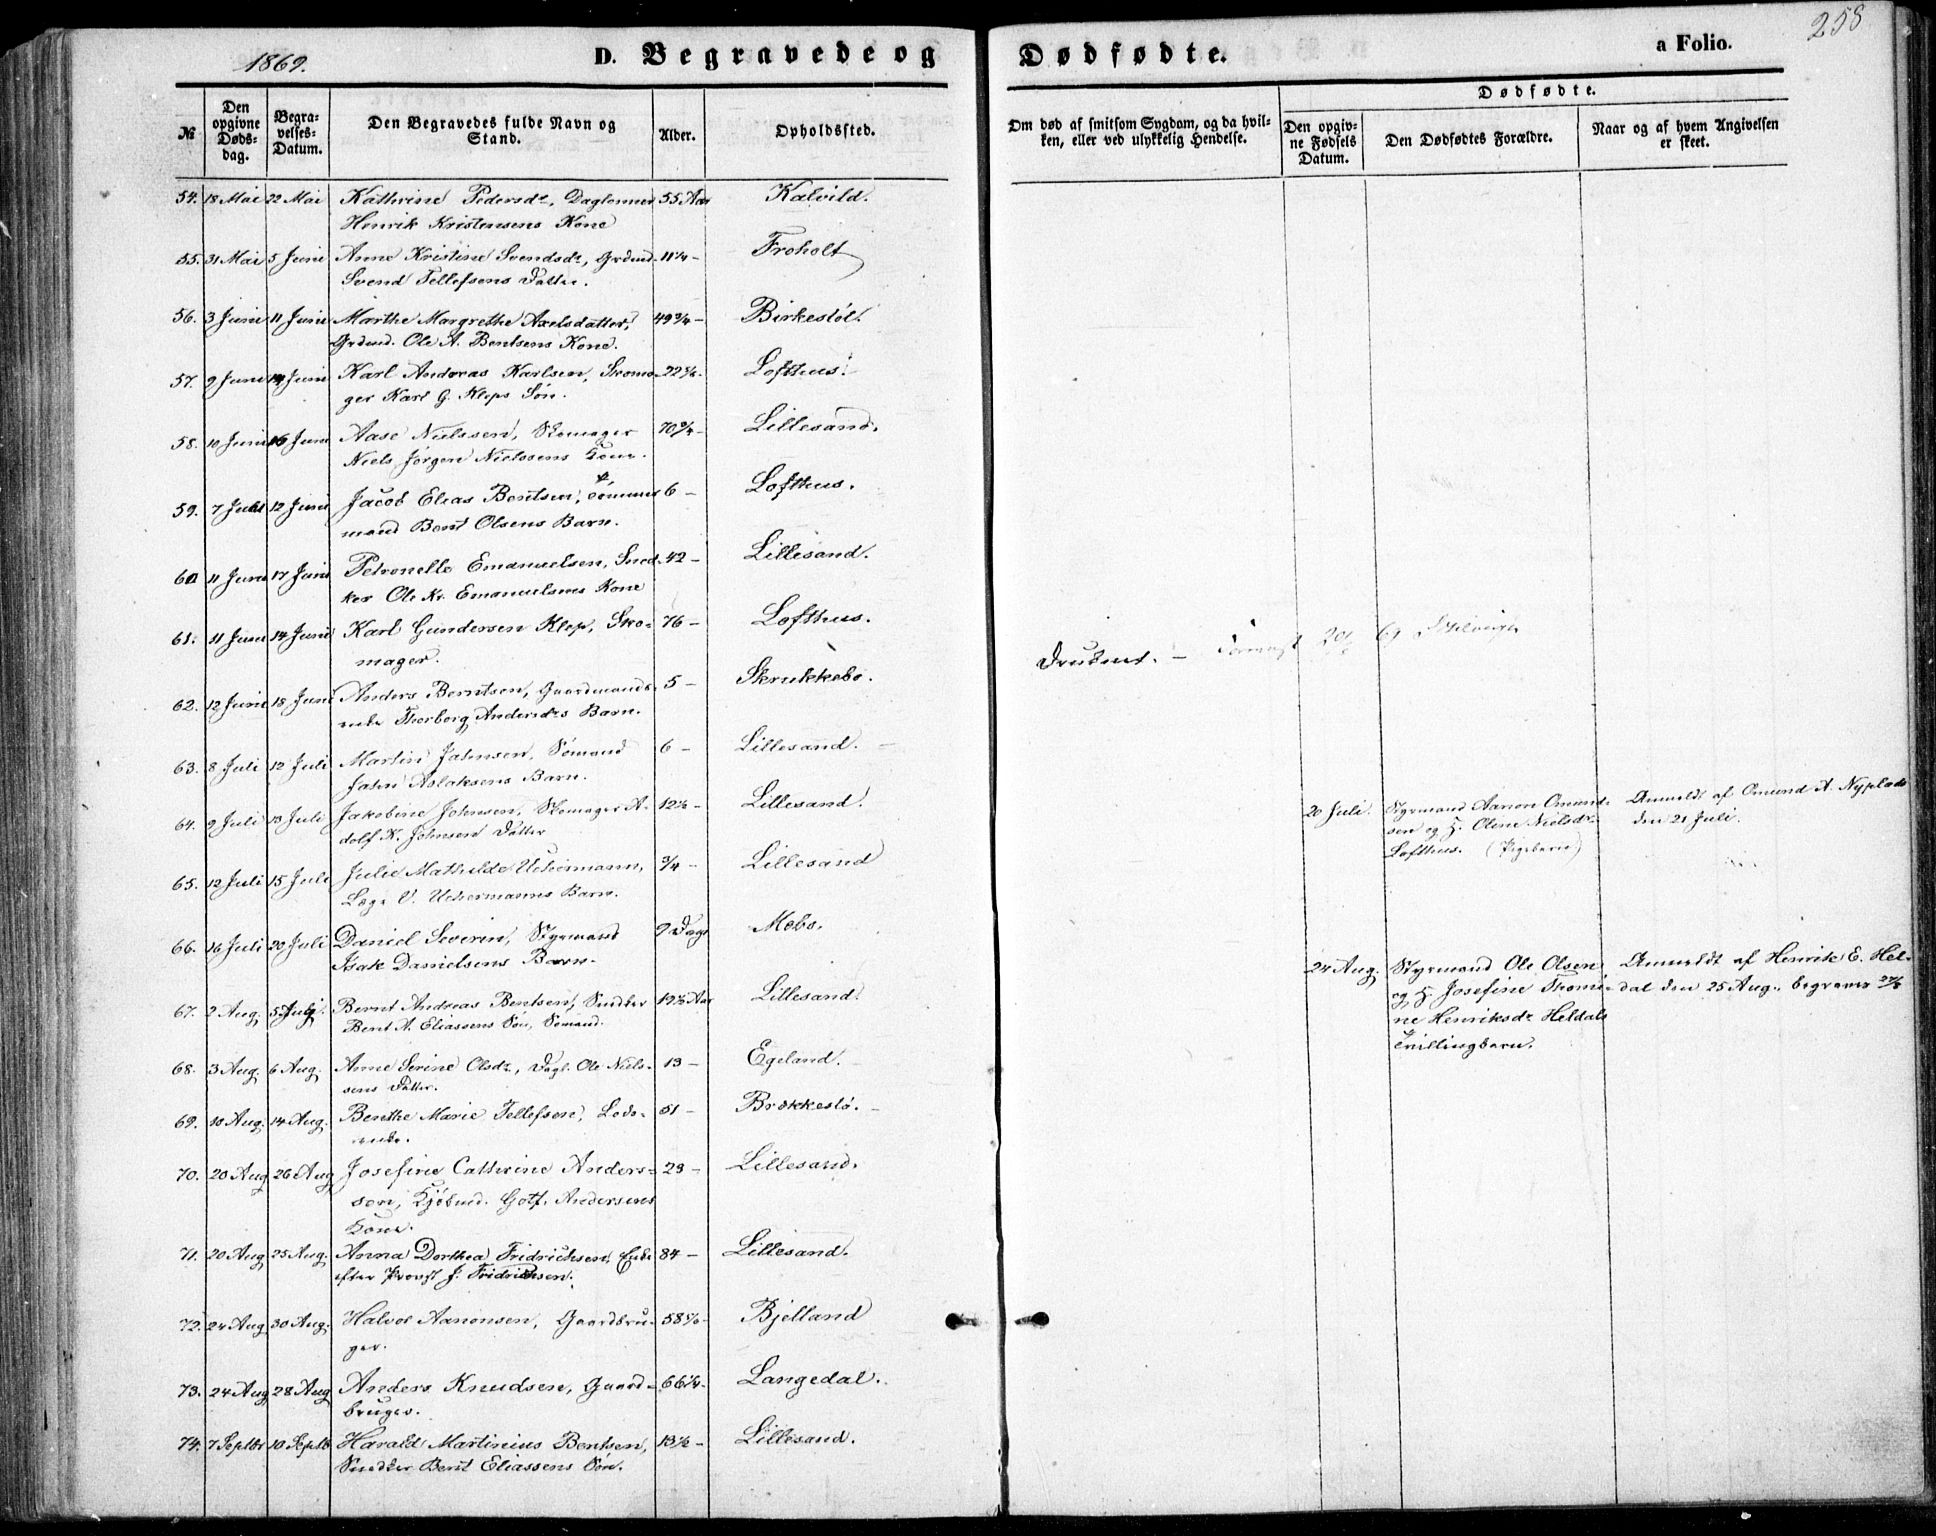 258
1869.
D. Begravede og Dødfødte.
a Folio.
№
Den opgivne Døds-dag.
Begra-velses-Datum.
Den Begravedes fulde Navn og Stand.
Alder.
Opholdssted.
Om død af smitsom Sygdom, og da hvil-ken, eller ved ulykkelig Hendelse.
Dødfødte.
Den opgiv-ne Fødsels Datum.
Den Dødfødtes Forældre.
Naar og af hvem Angivelsen er skeet.
54. 18 Mai 22 Mai Kathrine Pedersdr, Daglønner 55 Aar Kalvild.
Henrik Kristensens Kone
55. 31 Mai 5 Juni Anne Kristine Svendsdr, Grdmd. 11¼ – Froholt
Svend Tellefsens Datter.
56. 3 Juni 11 Juni Marthe Margrethe Axelsdatter, 49¾ – Birkestøl.
Grdmd. Ole A. Bentsens Kone.
57. 9 Juni 14 Juni Karl Andreas Karlsen, Skoma- 22 Lofthus.
ger Karl G. Kleps Søn.
58. 10 Juni 16 Juni Aase Nielssen, Skomager 70¾ – Lillesand.
Niels Jørgen Nielssens Kone.
59. 7 12 Juni Jacob Elias Bentsen, Tømmer- 6 – Lofthus.
mand Bent Olsens Barn.
60 11 Juni 17 Juni Petronelle Emanuelsen, Sned- 42 – Lillesand.
ker Ole Kr. Emanuelsens Kone
61. 11 Juni 14 Juni Karl Gundersen Klep, Sko- 76 – Lofthus.
mager.
Druknet. –
62. 12 Juni 18 Juni Anders Berntsen, Gaardmands- 5 – Skrukkebo.
enke Thorborg Andersdrs Barn.
63. 8 Juli 12 Juli Martin Jahnsen, Sømand 6 – Lillesand. –
Jahn Aslaksens Barn.
64. 9 Juli 13 Juli Jakobine Johnsen, Skomager A- 12½ – Lillesand.
dolf K. Johnsens Datter
20 Juli. Styrmand Aanon Omund- Anmeldt af Omund A. Nyplads
sen og H. Oline Nielsdr den 21 Juli.
Lofthus. (Pigebarn)
65. 12 Juli 15 Juli Julie Mathilde Uchermann, ¾ – Lillesand
Læge V. Uchermanns Barn.
66. 16 Juli 20 Juli Daniel Severin, Styrmand 9 Dage Mebø.
Isak Danielsens Barn.
24 Aug. Styrmand Ole Olsen Anmeldt af Henrik E. Hel-
og H. Josefine Thomi- dal den 25 Aug., begraven 27/8
ne Henriksdr Heldals
Tvillingbarn.
67. 2 Aug. 5 Bernt Andreas Bentsen, Snedker 19½ Aar Lillesand.
Bent A. Eliassens Søn, Sømand.
68. 3 Aug. 6 Aug. Anne Serine Olsdr, Dagl. Ole Niels- 13 – Egeland.
sens Datter.
69. 10 Aug. 14 Aug. Benthe Marie Tellefsen, Lods- 51 – Brækkestø. –
enke.
70. 20 Aug 26 Aug Josefine Cathrine Anders- 23 – Lillesand.
sen, Kjøbmd. Gotf. Andersens
Kone.
71. 20 Aug 25 Aug. Anna Dorthea Fridrichsen, Enke 84 – Lillesand.
efter Provst J. Fridrichsen.
72. 24 Aug 30 Aug. Halvor Aanonsen, Gaardbru- 58 Bjelland
ger.
73. 24 Aug 28 Aug Anders Knudsen, Gaard- 66¼ – Langedal.
bruger.
74. 7 Septbr 10 Septb Harald Martinius Bentsen, 13½ – Lillesand.
Snedker Bent Eliassens Søn.